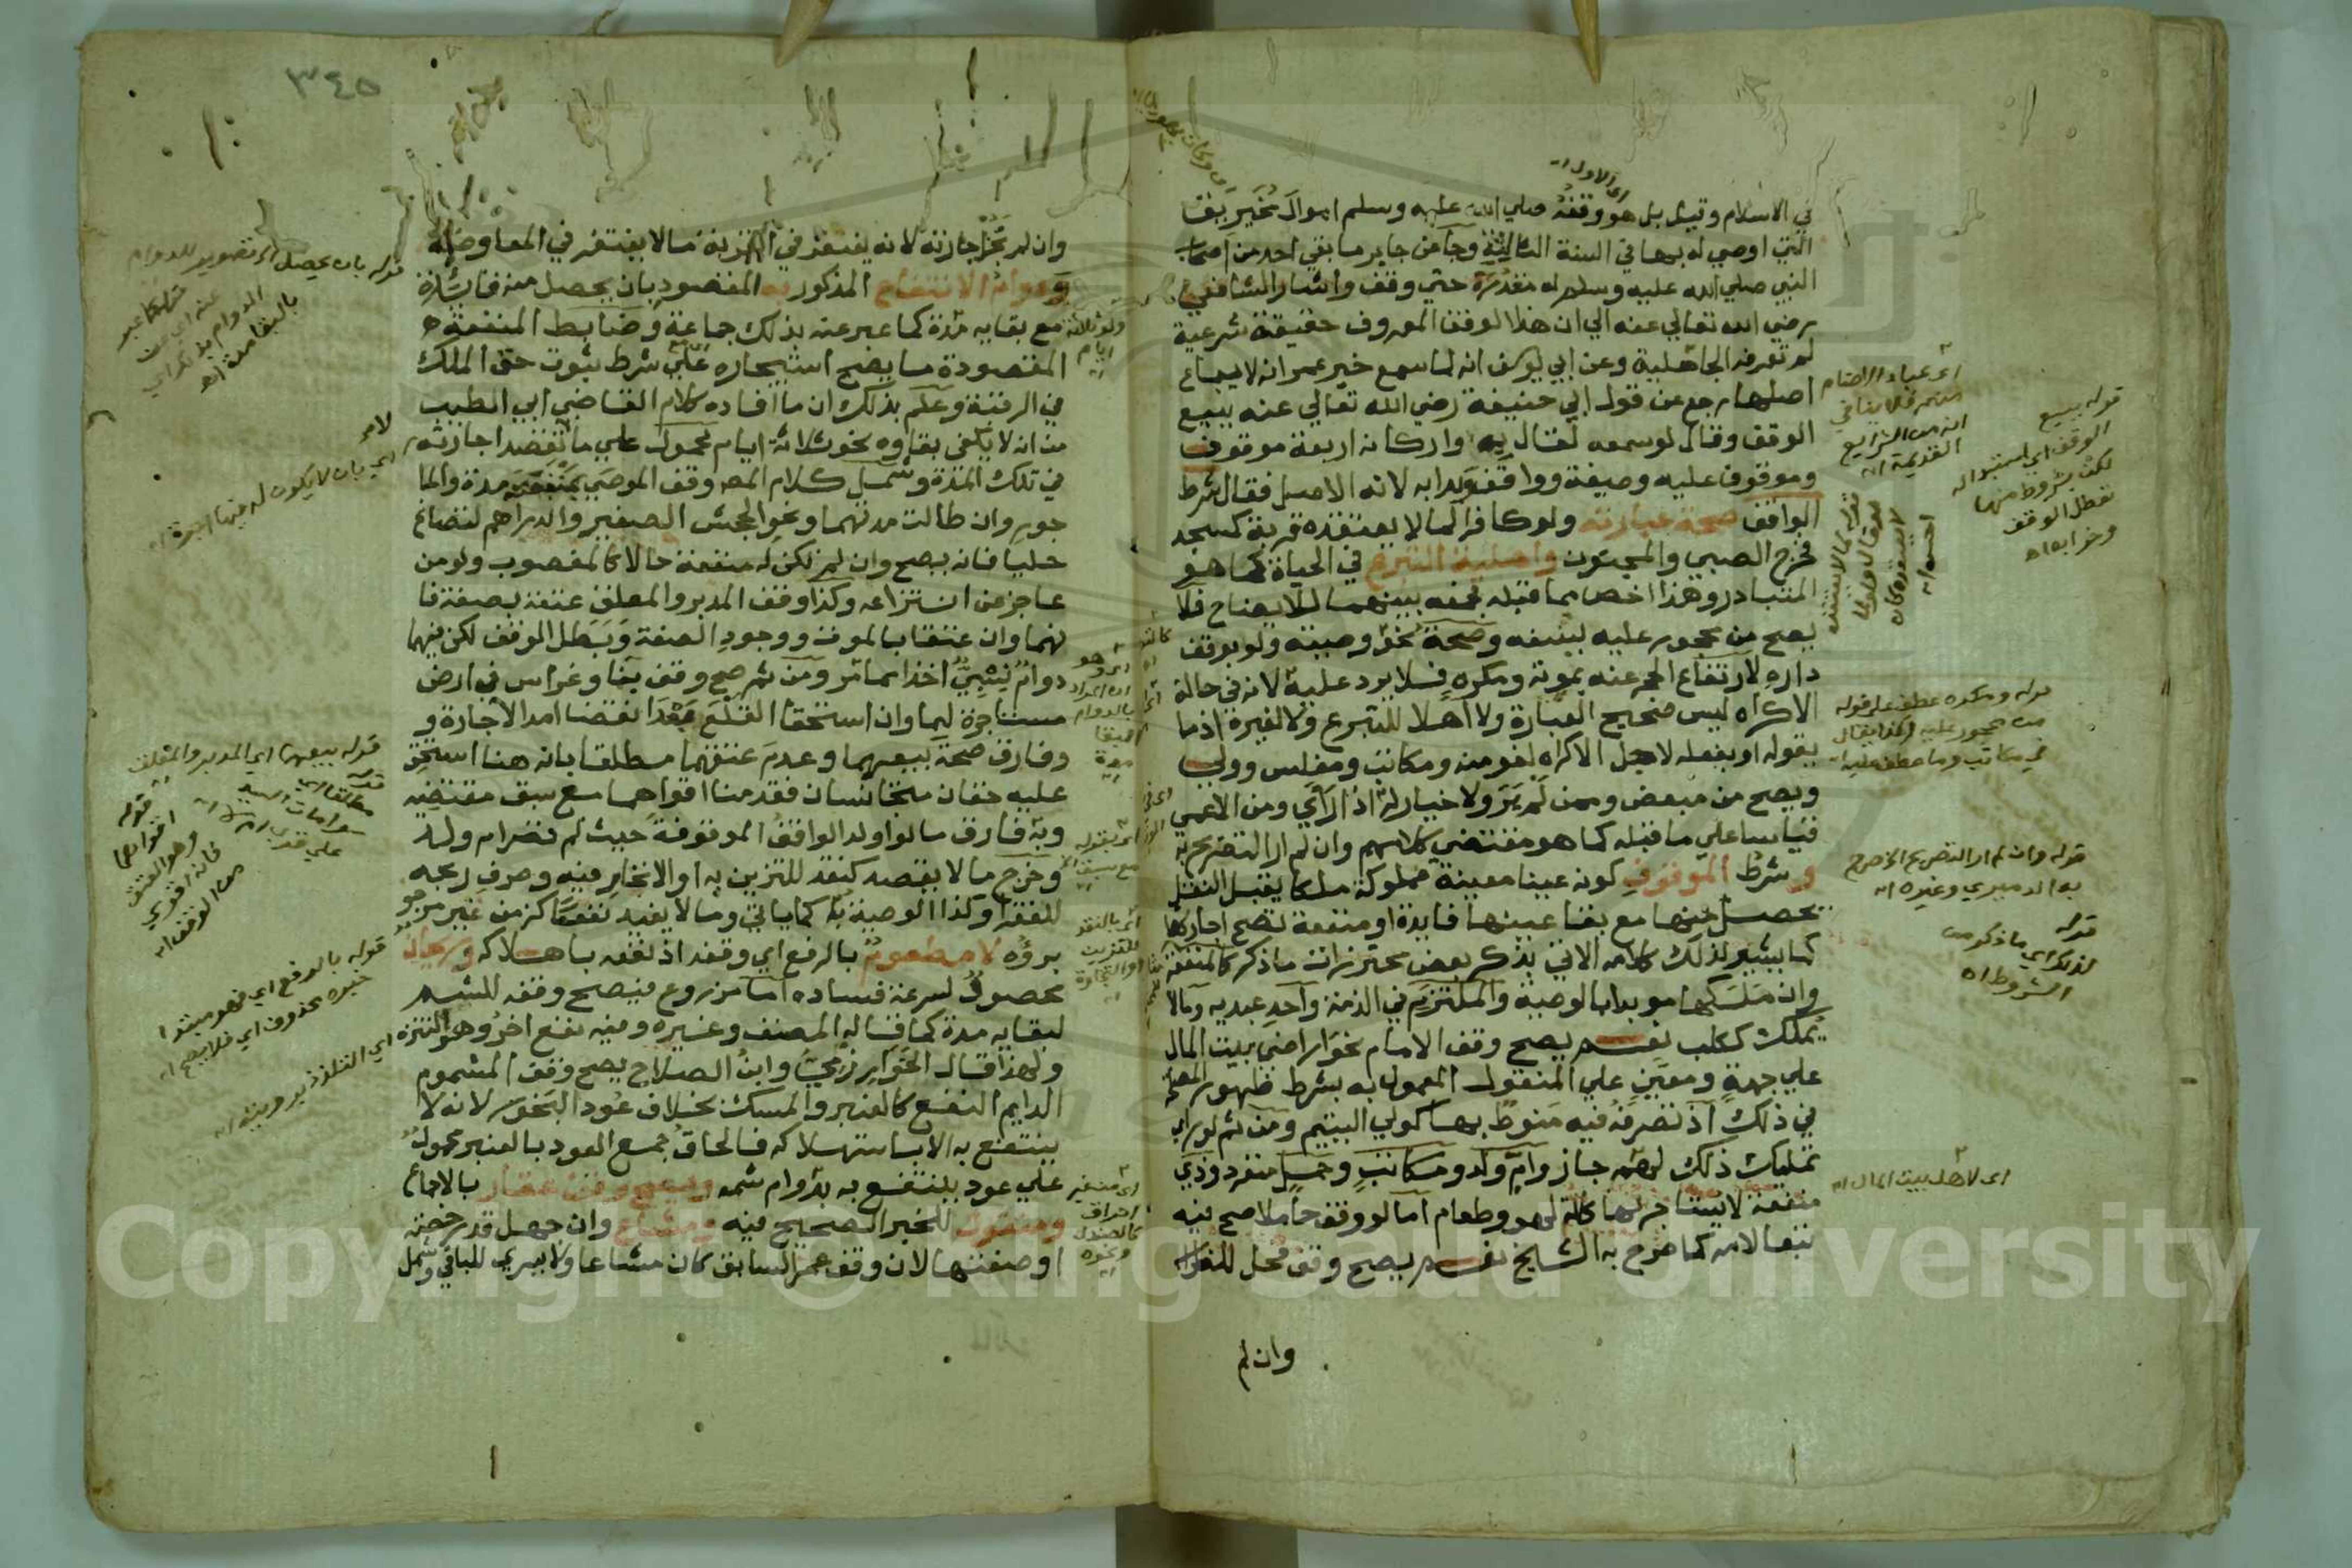 في الاسلام وقيل بل هو وقفه صلي الله عليه وسلم اموال مخيريق
التي اوصي له بها في السنة الثالثة وجا عن جابر ما بقي احد من اصحاب
النبي صلي الله عليه وسلم له مقدرة حتي وقف واشار الشافعي
رضي الله تعالي عنه الي ان هذا الوقف المعروف حقيقة شرعية
لم تعرفه الجاهلية وعن ابي يوسف انه لما سمع خبر عمر انه لا يباع
اصلها رجع عن قول ابي حنيفة رضي الله تعالي عنه ببيع
الوقف وقال لو سمعه لقال به واركانه اربعة موقوف
وموقوف عليه وصيغة وواقف وبدا به لانه الاصل فقال شرط
الواقف صحة عبارته ولو كافرا لما لا يعتقده قربة كمسجد
فخرج الصبي والمجنون واهلية التبرع في الحياة كما هو
المتبادر وهذا اخص مما قبله فجمعه بينهما للايضاح فلا
يصح من محجور عليه بسفه وصحة نحو وصيته ولو بوقف
داره لارتفاع الحجر عنه بموته ومكره فلا يرد عليه لانه في حالة
الاكراه ليس صحيح العبارة ولا اهلا للتبرع ولا لغيره اذ ما
يقوله او يفعله لاجل الاكراه لغو منه ومكاتب ومفلس وولي
ويصح من مبعض وممن لم ير ولا خيار له اذا راي ومن الاعمي
قياسا علي ما قبله كما هو مقتضي كلامهم وان لم ار التصريح به
وشرط الموقوف كونه عينا معينة مملوكة ملكا يقبل النقل
يحصل منها مع بقا عينها فايدة او منفعة تصح اجارتها
كما يشير لذلك كلامه الاتي بذكر بعض محترزات ما ذكر كالمنفعة
وان ملكها موبدا بالوصية والملتزم في الذمة واحد عبديه وما لا
يملك ككلب نعم يصح وقف الامام نحو اراضي بيت المال
علي جهة ومعين علي المنقول المعمول به بشرط ظهور المصلحة
في ذلك اذ تصرفه فيه منوط بها كولي اليتيم ومن ثم لو راي
تمليك ذلك لهم جاز وام ولد ومكاتب وحمل منفرد وذي
منفعة لا يستاجر لها كالة لهو وطعام اما لو وقف حاملا صح فيه
تبعا لامه كما صرح به الشيخ نعم يصح وقف فحل للضراب
وان لم
اي الاول اه
اي عباد الاصنام
منهم فلا ينافي
انه من الشرايع
القديمة اه
قوله ببيع
الوقف اي استبداله
لكن بشروط منها
تعطل الوقف
وخرابه اه
قوله ومكره عطف علي قوله
من محجور عليه وكذا يقال
في مكاتب وما عطف عليه اه
قوله وان لم ار التصريح الخ صرح
به الدميري وغيره اه
قوله
لذلك اي ما ذكر من
الشروط اه
اي لاهل بيت المال اه
٣٤٥
وان لم تجز اجارته لانه يغتفر في القربة ما لا يغتفر في المعاوضة
ودوام الانتفاع المذكور به المقصود بان يحصل منه فايدة
مع بقايه مدة كما عبر عنه بذلك جماعة وضابط المنفعة
المقصودة ما يصح استيجاره علي شرط ثبوت حق الملك
في الرقبة وعلم بذلك ان ما افاده كلام القاضي ابي الطيب
من انه لا يكفي بقاوه نحو ثلاثة ايام محمول علي ما تقصد اجارته
في تلك المدة وشمل كلام المص وقف الموصي بمنفعته مدة والما
جور وان طالت مدتهما ونحو الجحش الصغير والدراهم لتصاغ
حليا فانه يصح وان لم تكن له منفعة حالا كالمغصوب ولو من
عاجز عن انتزاعه وكذا وقف المدبر والمعلق عتقه بصفة فا
نهما وان عتقا بالموت ووجود الصفة وبطل الوقف لكن فيهما
دوام نسبي اخذا مما مر ومن ثم صح وقف بنا وغراس في ارض
مستاجرة لهما وان استحقا القلع بعد انقضا امد الاجارة و
وفارق صحة بيعهما وعدم عتقهما مطلقا بانه هنا استحق
عليه حقان متجانسان فقدمنا اقواهما مع سبق مقتضيه
وبه فارق ما لو اولد الواقف الموقوفة حيث لم تصر ام ولد
وخرج ما لا يقصد كنقد للتزيين به او الاتجار فيه وصرف ربحه
للفقرا وكذا الوصية به كما ياتي وما لا يفيد نفعا كزمن غير مرجو
برؤه لا مطعوم بالرفع اي وقفه اذ نفعه باهلاكه وريحان
محصود لسرعة فساده اما مزروع فيصح وقفه للشم
لبقايه مدة كما قاله المصنف وغيره وفيه نفع اخر وهو التنزه
ولهذا قال الخوارزمي وابن الصلاح يصح وقف المشموم
الدايم النفع كالعنبر والمسك بخلاف عود البخور لانه لا
ينتفع به الا باستهلاكه فالحاق جمع العود بالعنبر محمول
علي عود ينتفع به بدوام شمه ويصح وقف عقار بالاجماع
ومنقول للخبر الصحيح فيه ومشاع وان جهل قدر حصته
او صفتها لان وقف عمر السابق كان مشاعا ولا يسري للباقي وشمل
قوله بان يحصل الخ تصوير للدوام
بالبقا مدة اه
اي بان لا يكون له فيها اجرة اه
قوله بيعهما اي المدبر والمعلق
قوله
اقواهما
وهو العتق
فانه اقوي
من الوقف اه
قوله بالرفع اي فهو مبتدا
خبره محذوف اي فلا يصح اه
اي التلذذ برويته اه
ولو ثلاثة
ايام
اي بالنقد
للتزيين
او التجارة
كالصندل
ونحوه